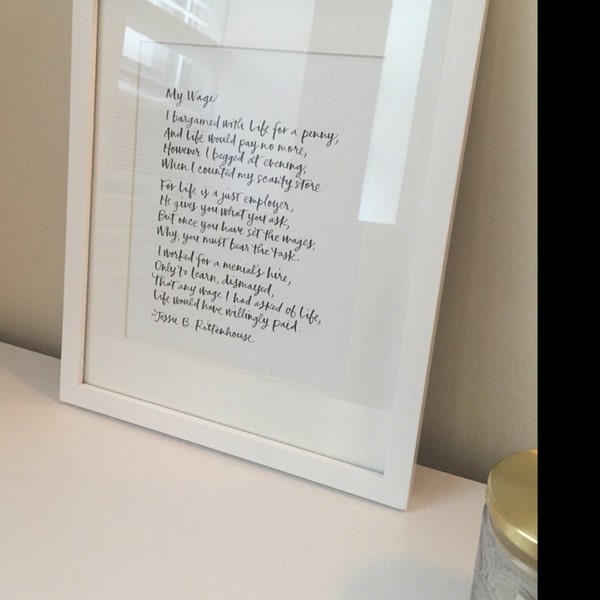 My Wage
I bargained with Life for a penny,
And Life would pay no more,
However I begged at evening,
When I counted my scanty store.
For Life is a just employer,
He gives you what you ask,
But once you have set the wages,
Why, you must bear the task.
I worked for a menial's hire,
Only to learn, dismayed,
That any wage I had asked of Life,
Life would have willingly paid.
-Jessie B. Rittenhouse